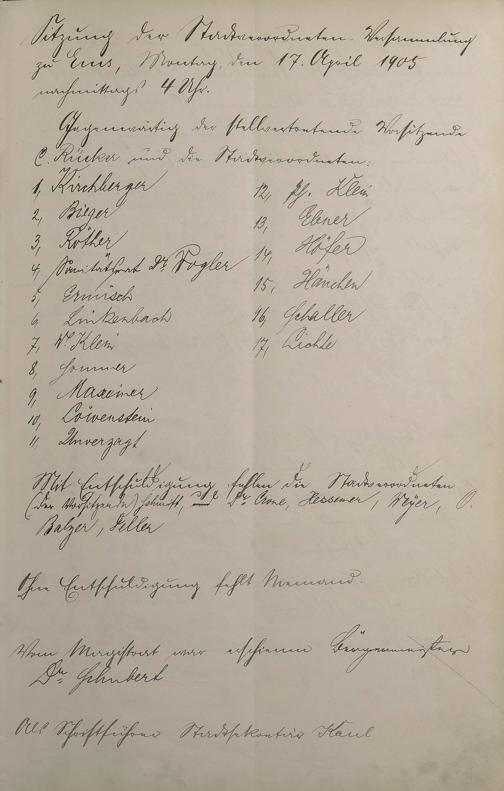 Sitzung der Stadtverordneten-Versammlung
zu Ems, Montag, den 17. April 1905
nachmittags 4 Uhr.
Gegenwärtig der stellvertretende Vorsitzende
C. Rücker und die Stadtverordneten:
1, Kirchberger
2, Bieger
3, Röther
4, Sanitätsrat Dr. Vogler
5, Ermisch
6, Linkenbach
7, W. Klein
8, Sommer
9, Maxeiner
10, Löwenstein
11, Unverzagt
12, Ph. Klein
13, Ebner
14, Höfer
15, Hänchen
16, Schaller
17, Lichte
Mit Entschuldigung fehlen die Stadtverordneten
(der Vorsitzende) Schmitt, und Dr. Crone, Hessemer, Meyer, O.
Balzer, Feller
Ohne Entschuldigung fehlt Niemand.
Vom Magistrat war erschienen Bürgermeister
Dr. Schubert
Als Schriftführer Stadtsekretär Kaul